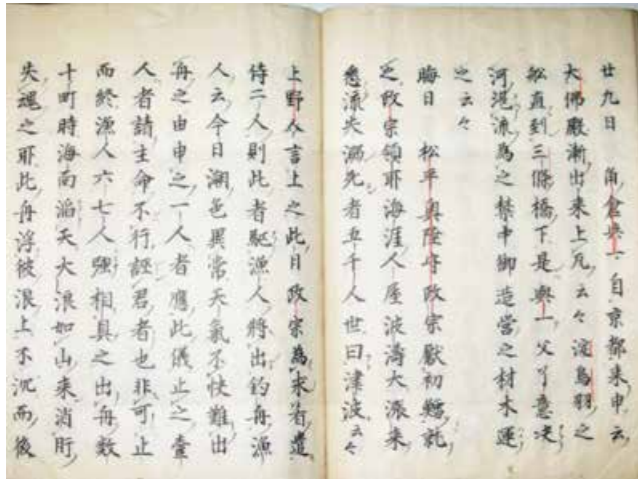 廿九日　角倉與一自京都来申云
大佛殿漸出来上瓦云々淀鳥羽之
舩直到三條橋下是與一父了意决
河漑流為之禁中御造営之材木運
之云々
晦日　松平奥陸守政宗献初鱈就
之政宗領所海涯人屋波涛大漲来
悉流失溺死者五千人世曰津波云々
上野介言上之此日政宗為求肴遣
侍二人則此者駈漁人將出釣舟漁
人云今日潮色異常天氣不快難出
舟之由申之一人者應此儀止之壹
人者請主命不行誣君者也非可止
而終漁人六七人強相具之出舟数
十町時海面滔天大浪如山来消肝
失魂之所此舟浮彼浪上不沉而後